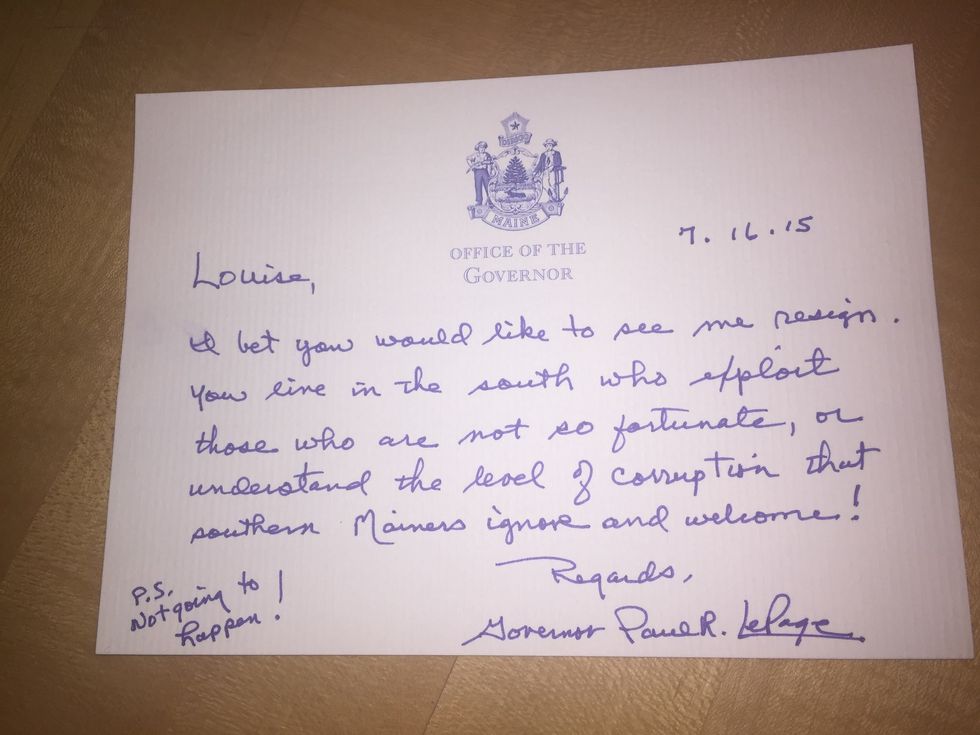 DIRIGO
MAINE
OFFICE OF THE
GOVERNOR
7.16.15
Louise,
I bet you would like to see me resign.
You live in the south who exploit
those who are not so fortunate, or
understand the level of corruption that
southern Mainers ignore and welcome!
Regards,
Governor Paul R. LePage
P.S.
Not going to
happen!